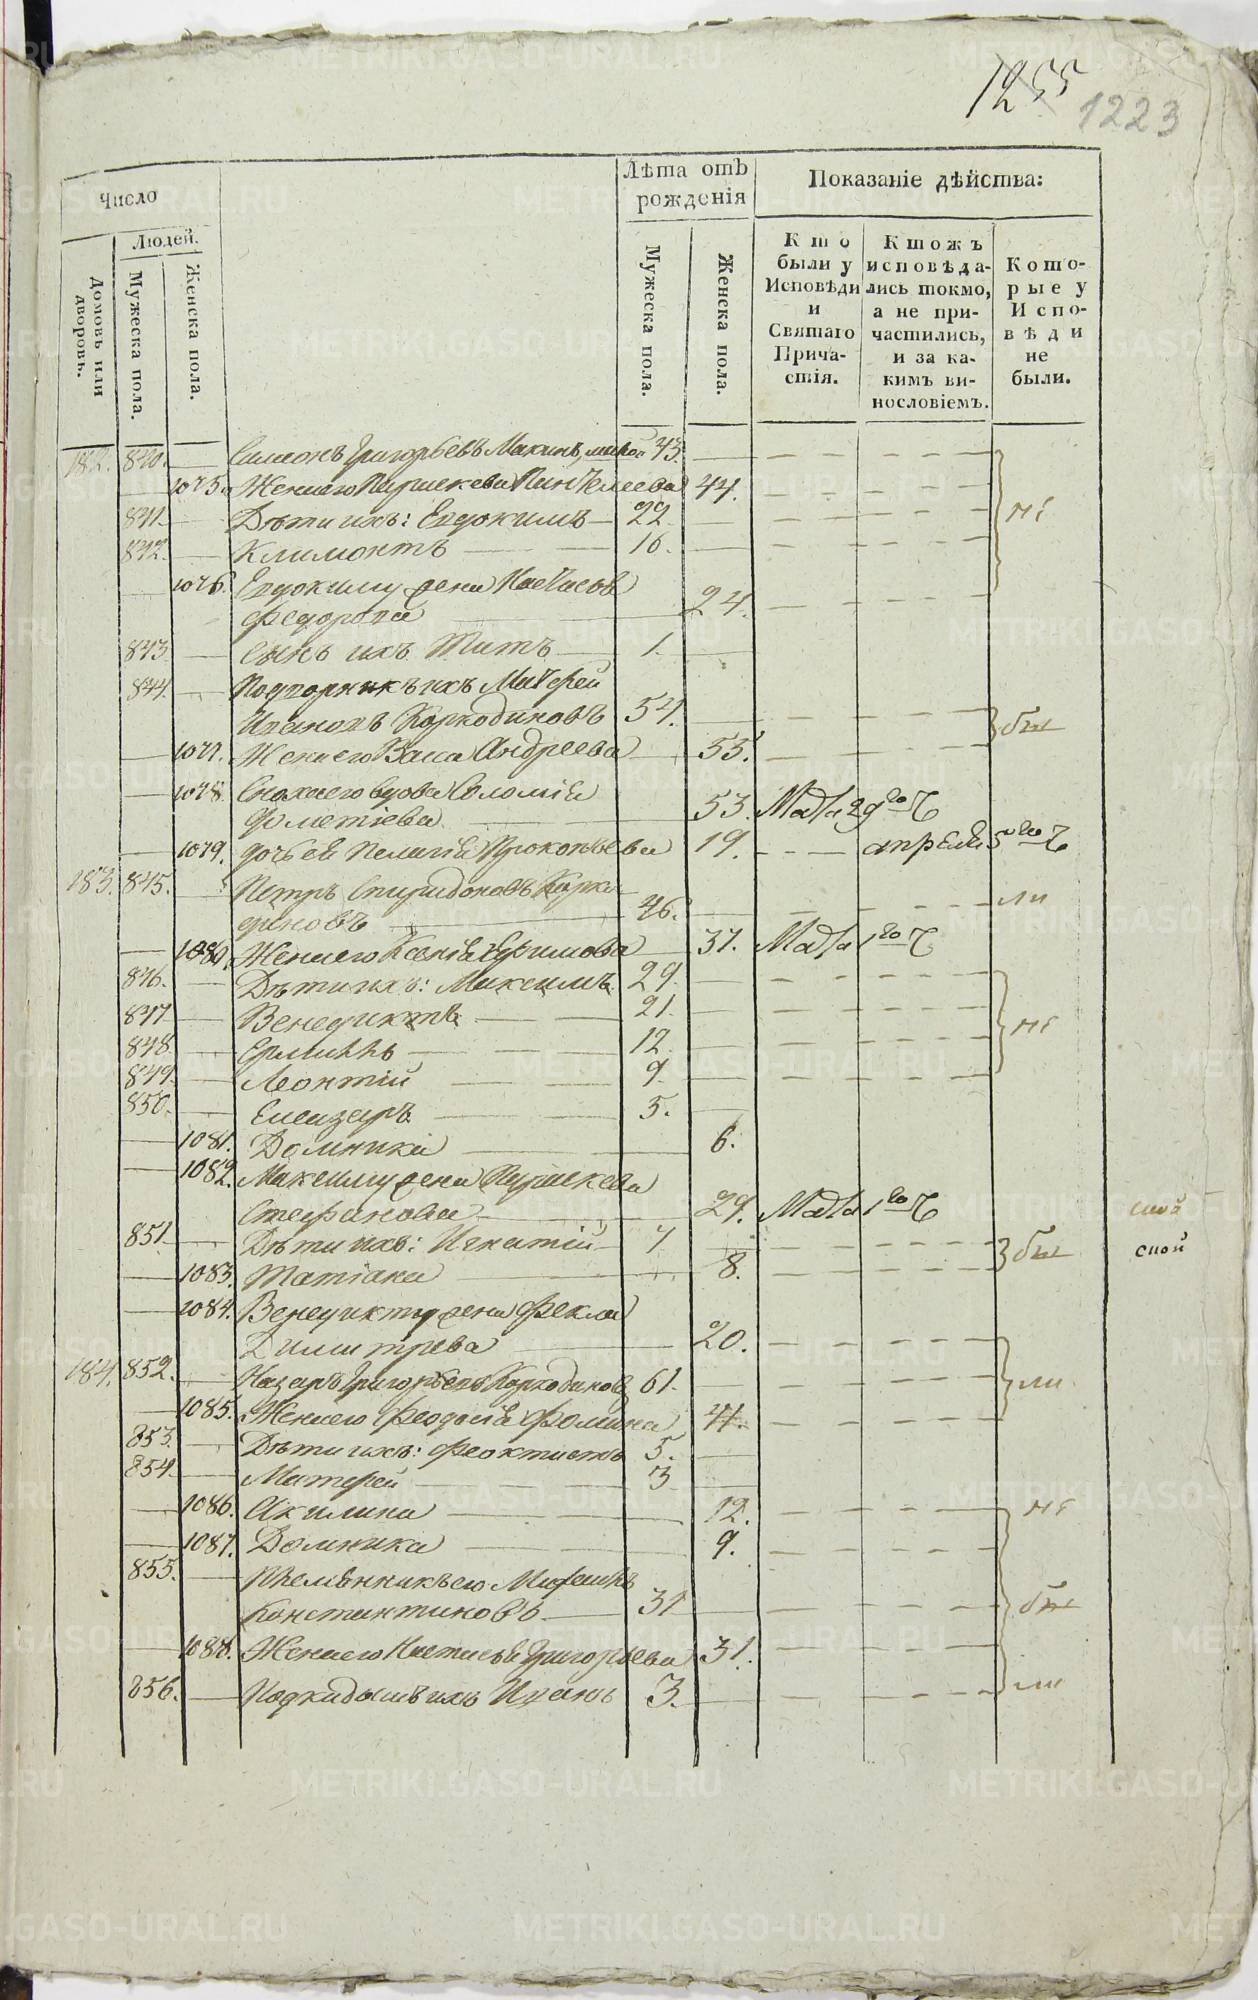 1255 1223
Число
Людей.
Домовъ или дворовъ.
Мужеска пола.
Женска пола.
Лѣта отъ рожденія
Мужеска пола.
Женска пола.
Показаніе дѣйства:
Кто были у Исповѣди и Святаго Причастія.
Ктожъ исповѣдались токмо, а не причастились, и за какимъ винословіемъ.
Которые у Исповѣди не были.
182. 840. Симеонъ Григорьевъ Макинъ, 43.
1075. Жена его Параскева Пантелеева 44.
841. Дѣти ихъ: Евдокимъ 22
842. Климонтъ 16.
1076. Евдокиму жена Настасья
Федорова 24.
843. Сынъ ихъ Титъ 1.
844. Подворникъ ихъ Матфей
Ивановъ Коркодиновъ 54.
1077. Жена его Васса Андреева 53.
1078. Сноха его вдова Соломія
Фометіева 53. Марта 29го Ч
1079. дочь ея Пелагія Прокопьева 19. апреля 5го Ч
183. 845. Петръ Спиридоновъ Корко-
диновъ 46.
1080. Жена его Ксенія Ефимова 37. Марта 1го Ч
846. Дѣти ихъ: Максимъ 29.
847. Венедиктъ 21.
848. Ермилъ 12
849. Леонтій 9.
850. Елеазаръ 5.
1081. Домника 6.
1082. Максиму жена Параскева
Стефанова 29. Марта 1го Ч
851. Дѣти ихъ: Игнатій 7
1083. Татіана 8.
1084. Венедикту жена Фекла
Димитрева 20.
184. 852. Назаръ Григорьевъ Коркодиновъ 61.
1085. Жена его Феодосія Фомина 41.
853. Дѣти ихъ: Феоктистъ 5.
854. Матфей 3
1086. Акилина 12.
1087. Домника 9.
855. Племянникъ его
Константиновъ 31
1088. Жена его Настасья Григорьева 31.
856. Подкидышъ ихъ Иванъ 3.
METRIKI.GASO-URAL.RU